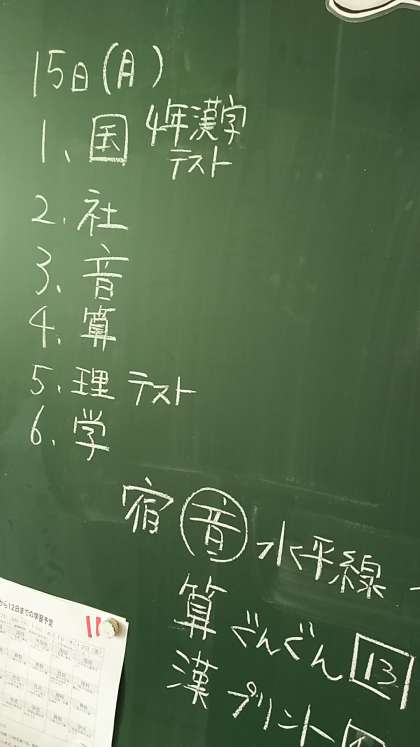 15日(月)
1、国 4年漢字
テスト
2、社
3、音
4、算
5、理 テスト
6、学
宿 音 水平線
算 ぐんぐん 13
漢 プリント
から12日までの学習予定
11